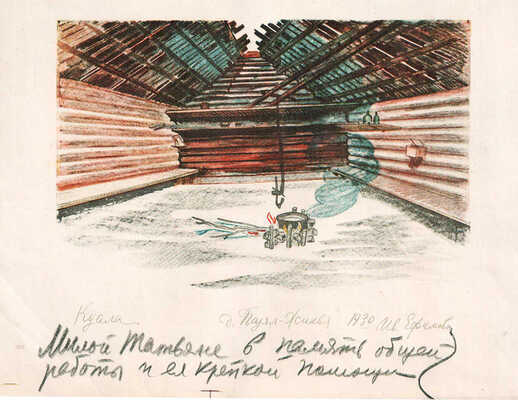 Куала д. 1930 Ив Ефимов
Милой Татьяне в память общей
работы и ея крепкой помощи